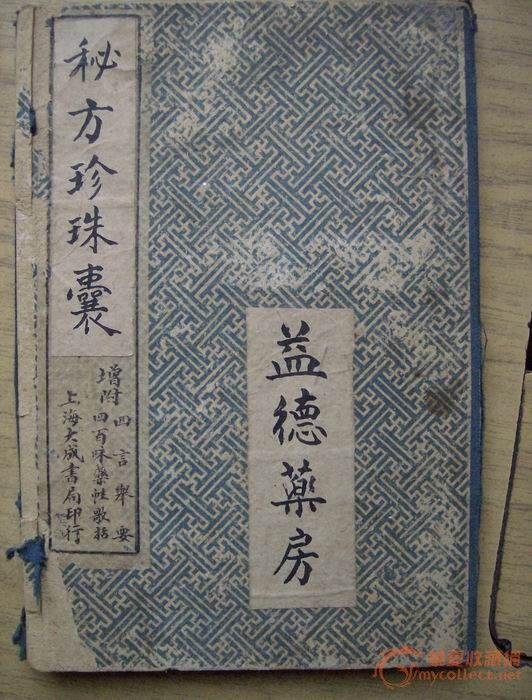 秘方珍珠囊
增附
四言舉要
四百味藥性歌括
上海大成書局印行
益德藥房
華夏收藏網
mycollect.net